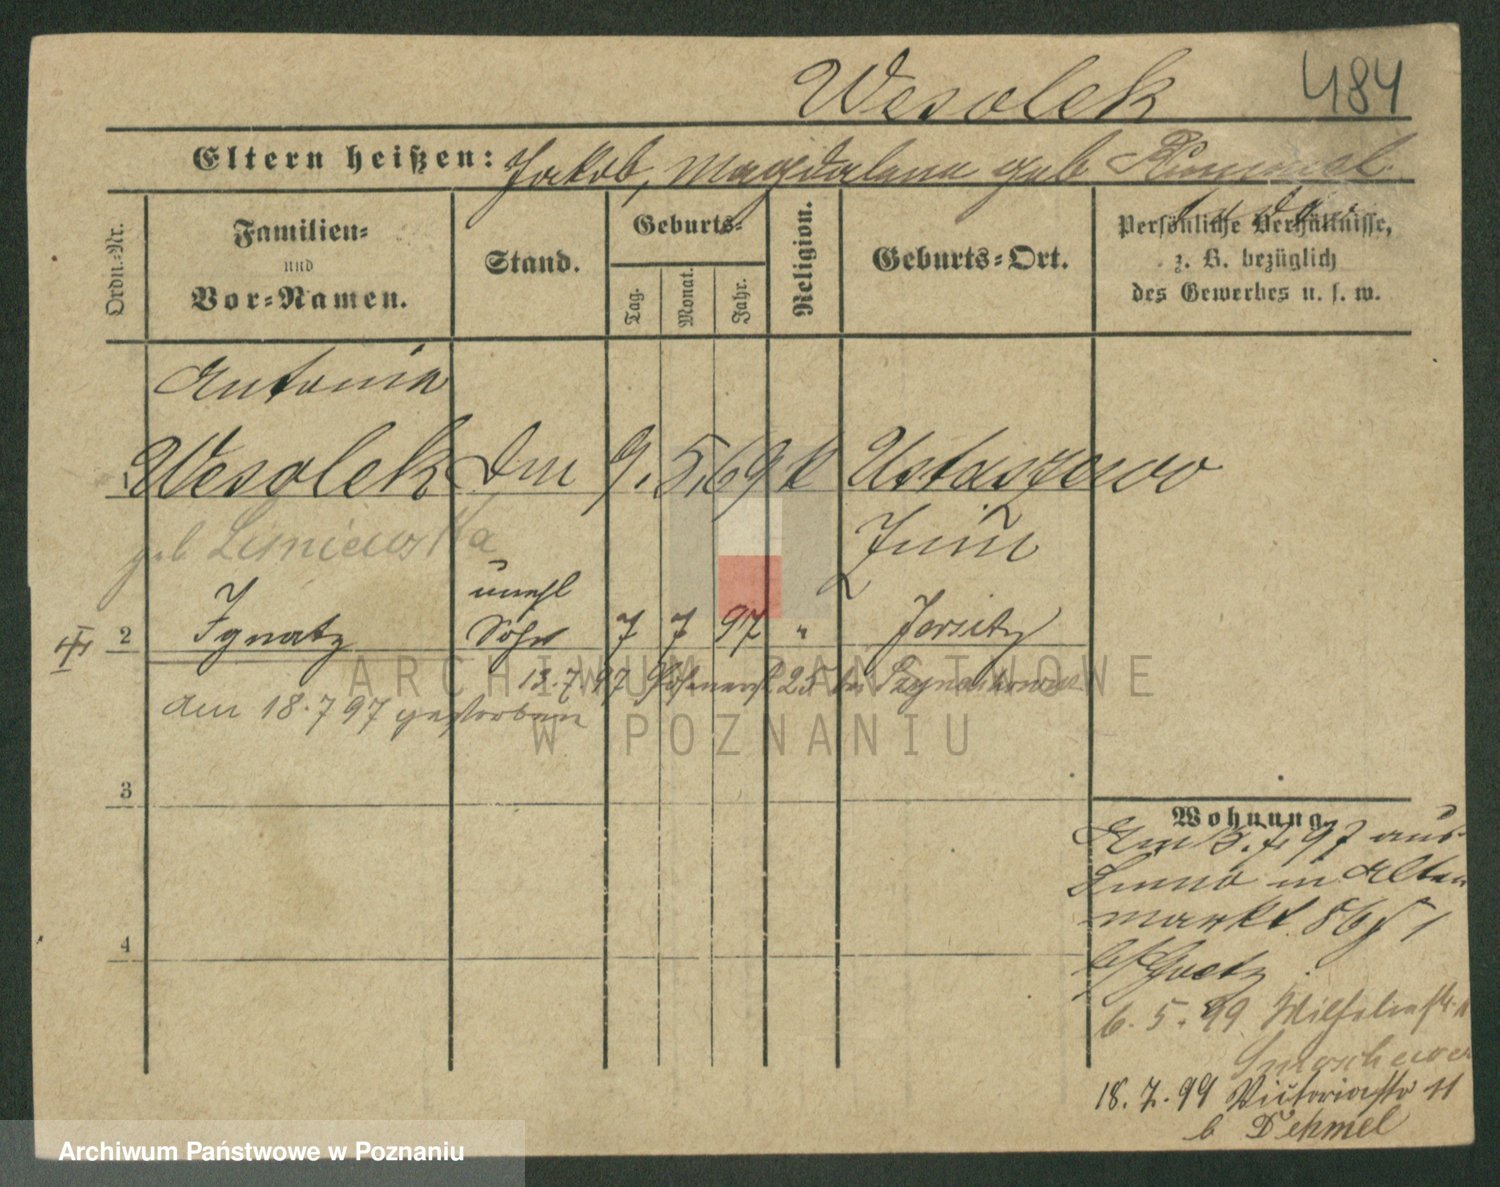 Wesolek 484
Eltern heißen: Jakob, Magdalena geb
Ordn.-Nr. Familien- und Vor-Namen. Stand. Geburts- Tag. Monat. Jahr. Religion. Geburts-Ort. Persönliche Verhältnisse, z. B. bezüglich des Gewerbes u. s. w.
Antonia
1 Wesolek 9. 5. 69 k Ustaszewo
geb
Znin
unehl
2 Ignatz Sohn 7 7 97 " Jersitz
13.7 97 25 bei
den 18.7 97 gestorben
3
4
Wohnung.
Am 13.7.97 aus
in Alten
markt 86
6.5.99
18.7.99 Victoriastr 11
b Dehmel
ARCHIWUM PAŃSTWOWE
W POZNANIU
Archiwum Państwowe w Poznaniu